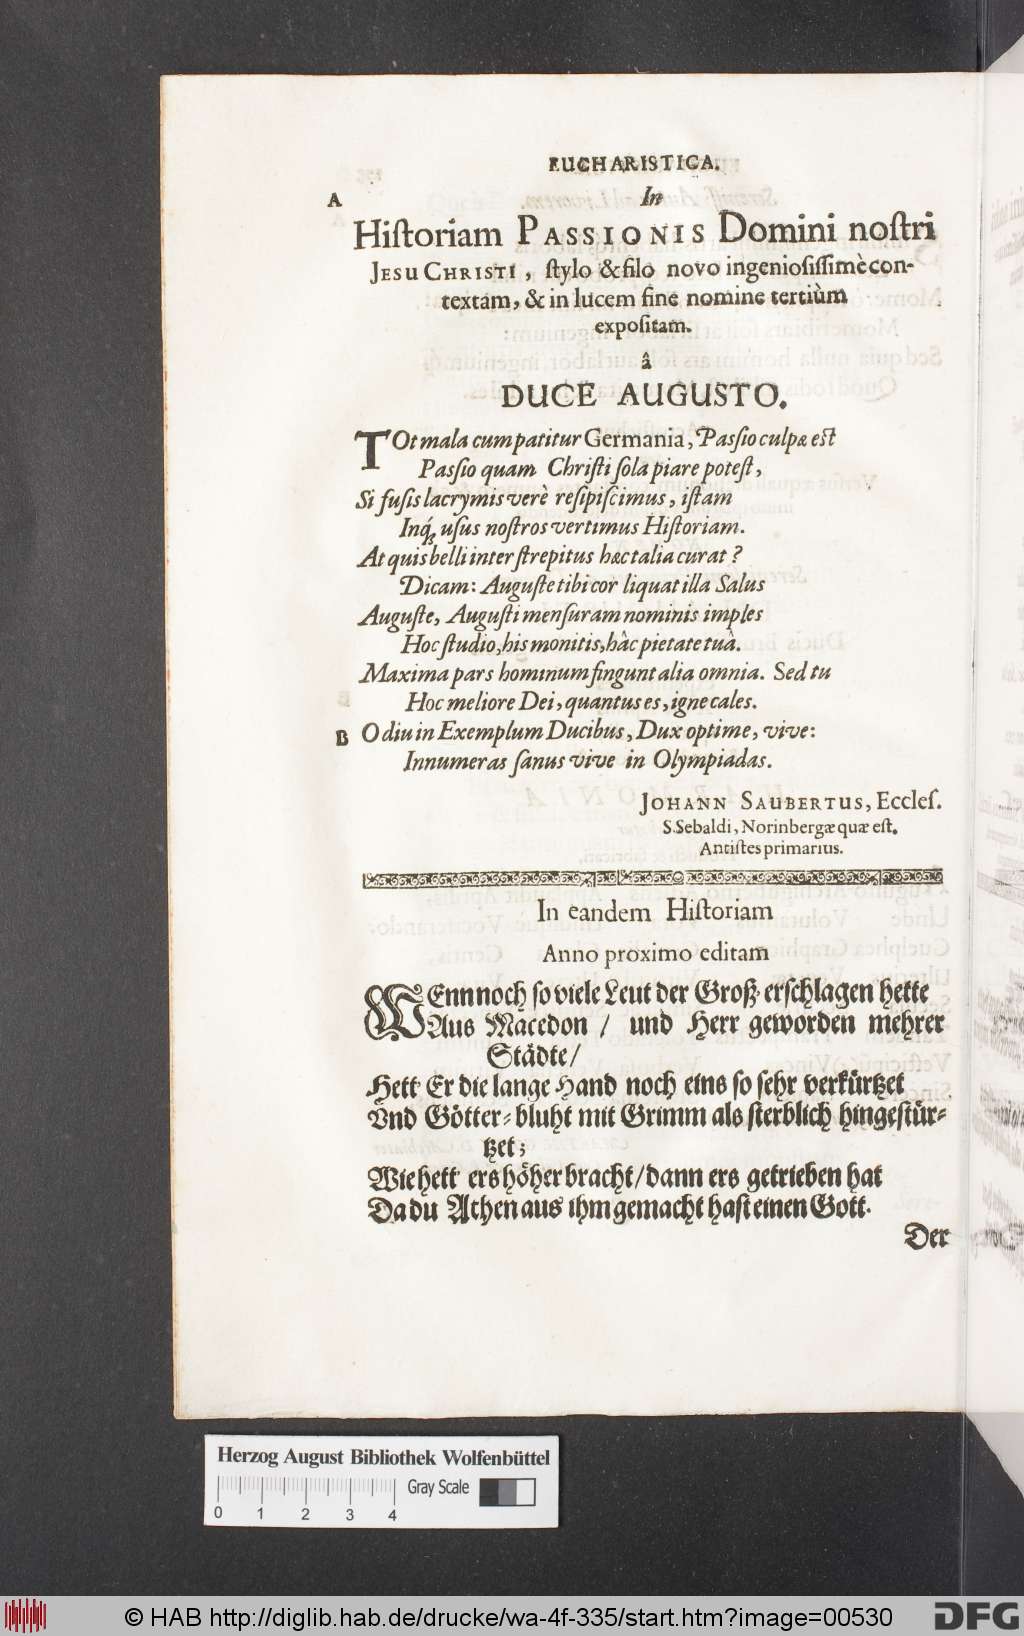 EUCHARISTICA.
A
In
Hiſtoriam PASSIONIS Domini noſtri
JESU CHRISTI, ſtylo & filo novo ingenioſiſſimè con-
textam, & in lucem ſine nomine tertiùm
expoſitam.
â
DUCE AUGUSTO.
TOt mala cum patitur Germania, Paſſio culpæ eſt
Paſſio quam Chriſti ſola piare poteſt,
Si fuſis lacrymis verè reſipiſcimus, iſtam
Inq́ꝫ uſus noſtros vertimus Hiſtoriam.
At quis belli inter ſtrepitus hæc talia curat?
Dicam: Auguſte tibi cor liquat illa Salus
Auguſte, Auguſti menſuram nominis imples
Hoc ſtudio, his monitis, hâc pietate tuâ.
Maxima pars hominum fingunt alia omnia. Sed tu
Hoc meliore Dei, quantus es, igne cales.
B O diu in Exemplum Ducibus, Dux optime, vive:
Innumeras ſanus vive in Olympiadas.
JOHANN SAUBERTUS, Eccleſ.
S. Sebaldi, Norinbergæ quæ eſt.
Antiſtes primarius.
In eandem Hiſtoriam
Anno proximo editam
WEnn noch ſo viele Leut der Groß' erſchlagen hette
Aus Macedon / und Herr geworden mehrer
Städte /
Hett' Er die lange Hand noch eins ſo ſehr verkürtzet
Vnd Götter-bluht mit Grimm als ſterblich hingeſtür-
tzet;
Wie hett' ers höher bracht / dann ers getrieben hat
Da du Athen aus ihm gemacht haſt einen Gott.
Der
Herzog August Bibliothek Wolfenbüttel
Gray Scale
0 1 2 3 4
© HAB http://diglib.hab.de/drucke/wa-4f-335/start.htm?image=00530
DFG